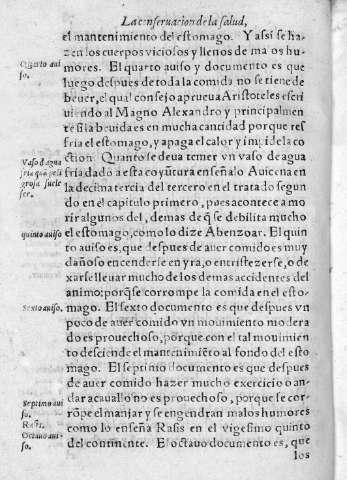 La conseruacion de la salud,
el mantenimiento del estomago. Y assi se ha-
zen los cuerpos viciosos y llenos de malos hu-
mores. El quarto auiso y documento es que
luego despues de toda la comida no se tiene de
beuer, el qual consejo aprueua Aristoteles escri
uiendo al Magno Alexandro y principalmen
te si la beuida es en mucha cantidad porque res
fria el estomago, y apaga el calor y impide la co
ction. Quanto se deua temer vn vaso de agua
fria dado a esta coyūtura enseñalo Auicena en
la decima tercia del tercero en el tratado segun
do en el capitulo primero, pues acontece a mo
rir algunos del, demas de q̄ se debilita mucho
el estomago, como lo dize Abenzoar. El quin
to auiso es, que despues de auer comido es muy
dañoso encenderse en yra, o entristezerse, o de
xarse lleuar mucho de los demas accidentes del
animo: porq̄ se corrompe la comida en el esto-
mago. El sexto documento es que despues vn
poco de auer comido vn mouimiento modera
do es prouechoso, porque con el tal mouimien
to desciende el mantenimiēto al fondo del esto
mago. El septimo documento es que despues
de auer comido hazer mucho exercicio o an-
dar a cauallo no es prouechoso, porque se cor-
rōpe el manjar y se engendran malos humores
como lo enseña Rasis en el vigesimo quinto
del continente. El octauo documento es, que
los
Quarto aui
so.
Vaso d agua
fria
groso suele
ser.
quinto auiso
Sexto auiso.
Septimo aui
so.
Rasis.
Octauo aui-
so.